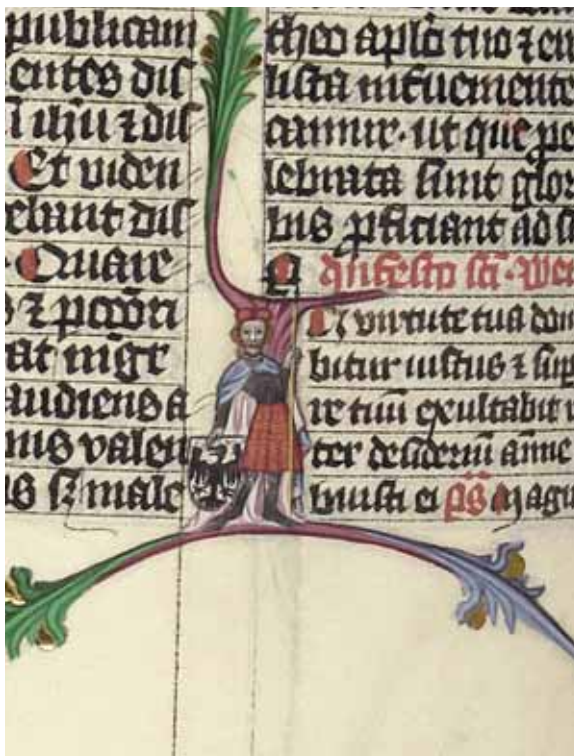 publicani
entes dis
ihm z dis
Et viden
ebant dis
Quare
s z pccōri
at mgr
audiens a
valen
sz male
theo aplō tuo z eu
lista
ut que pe
lebrata sunt glor
bis proficiant ad s
In festo scī · Wen
In virtute tua dom
bitur iustus z sup
re tuū exultabit v
ter desideriū anime
buisti ei ps Magn